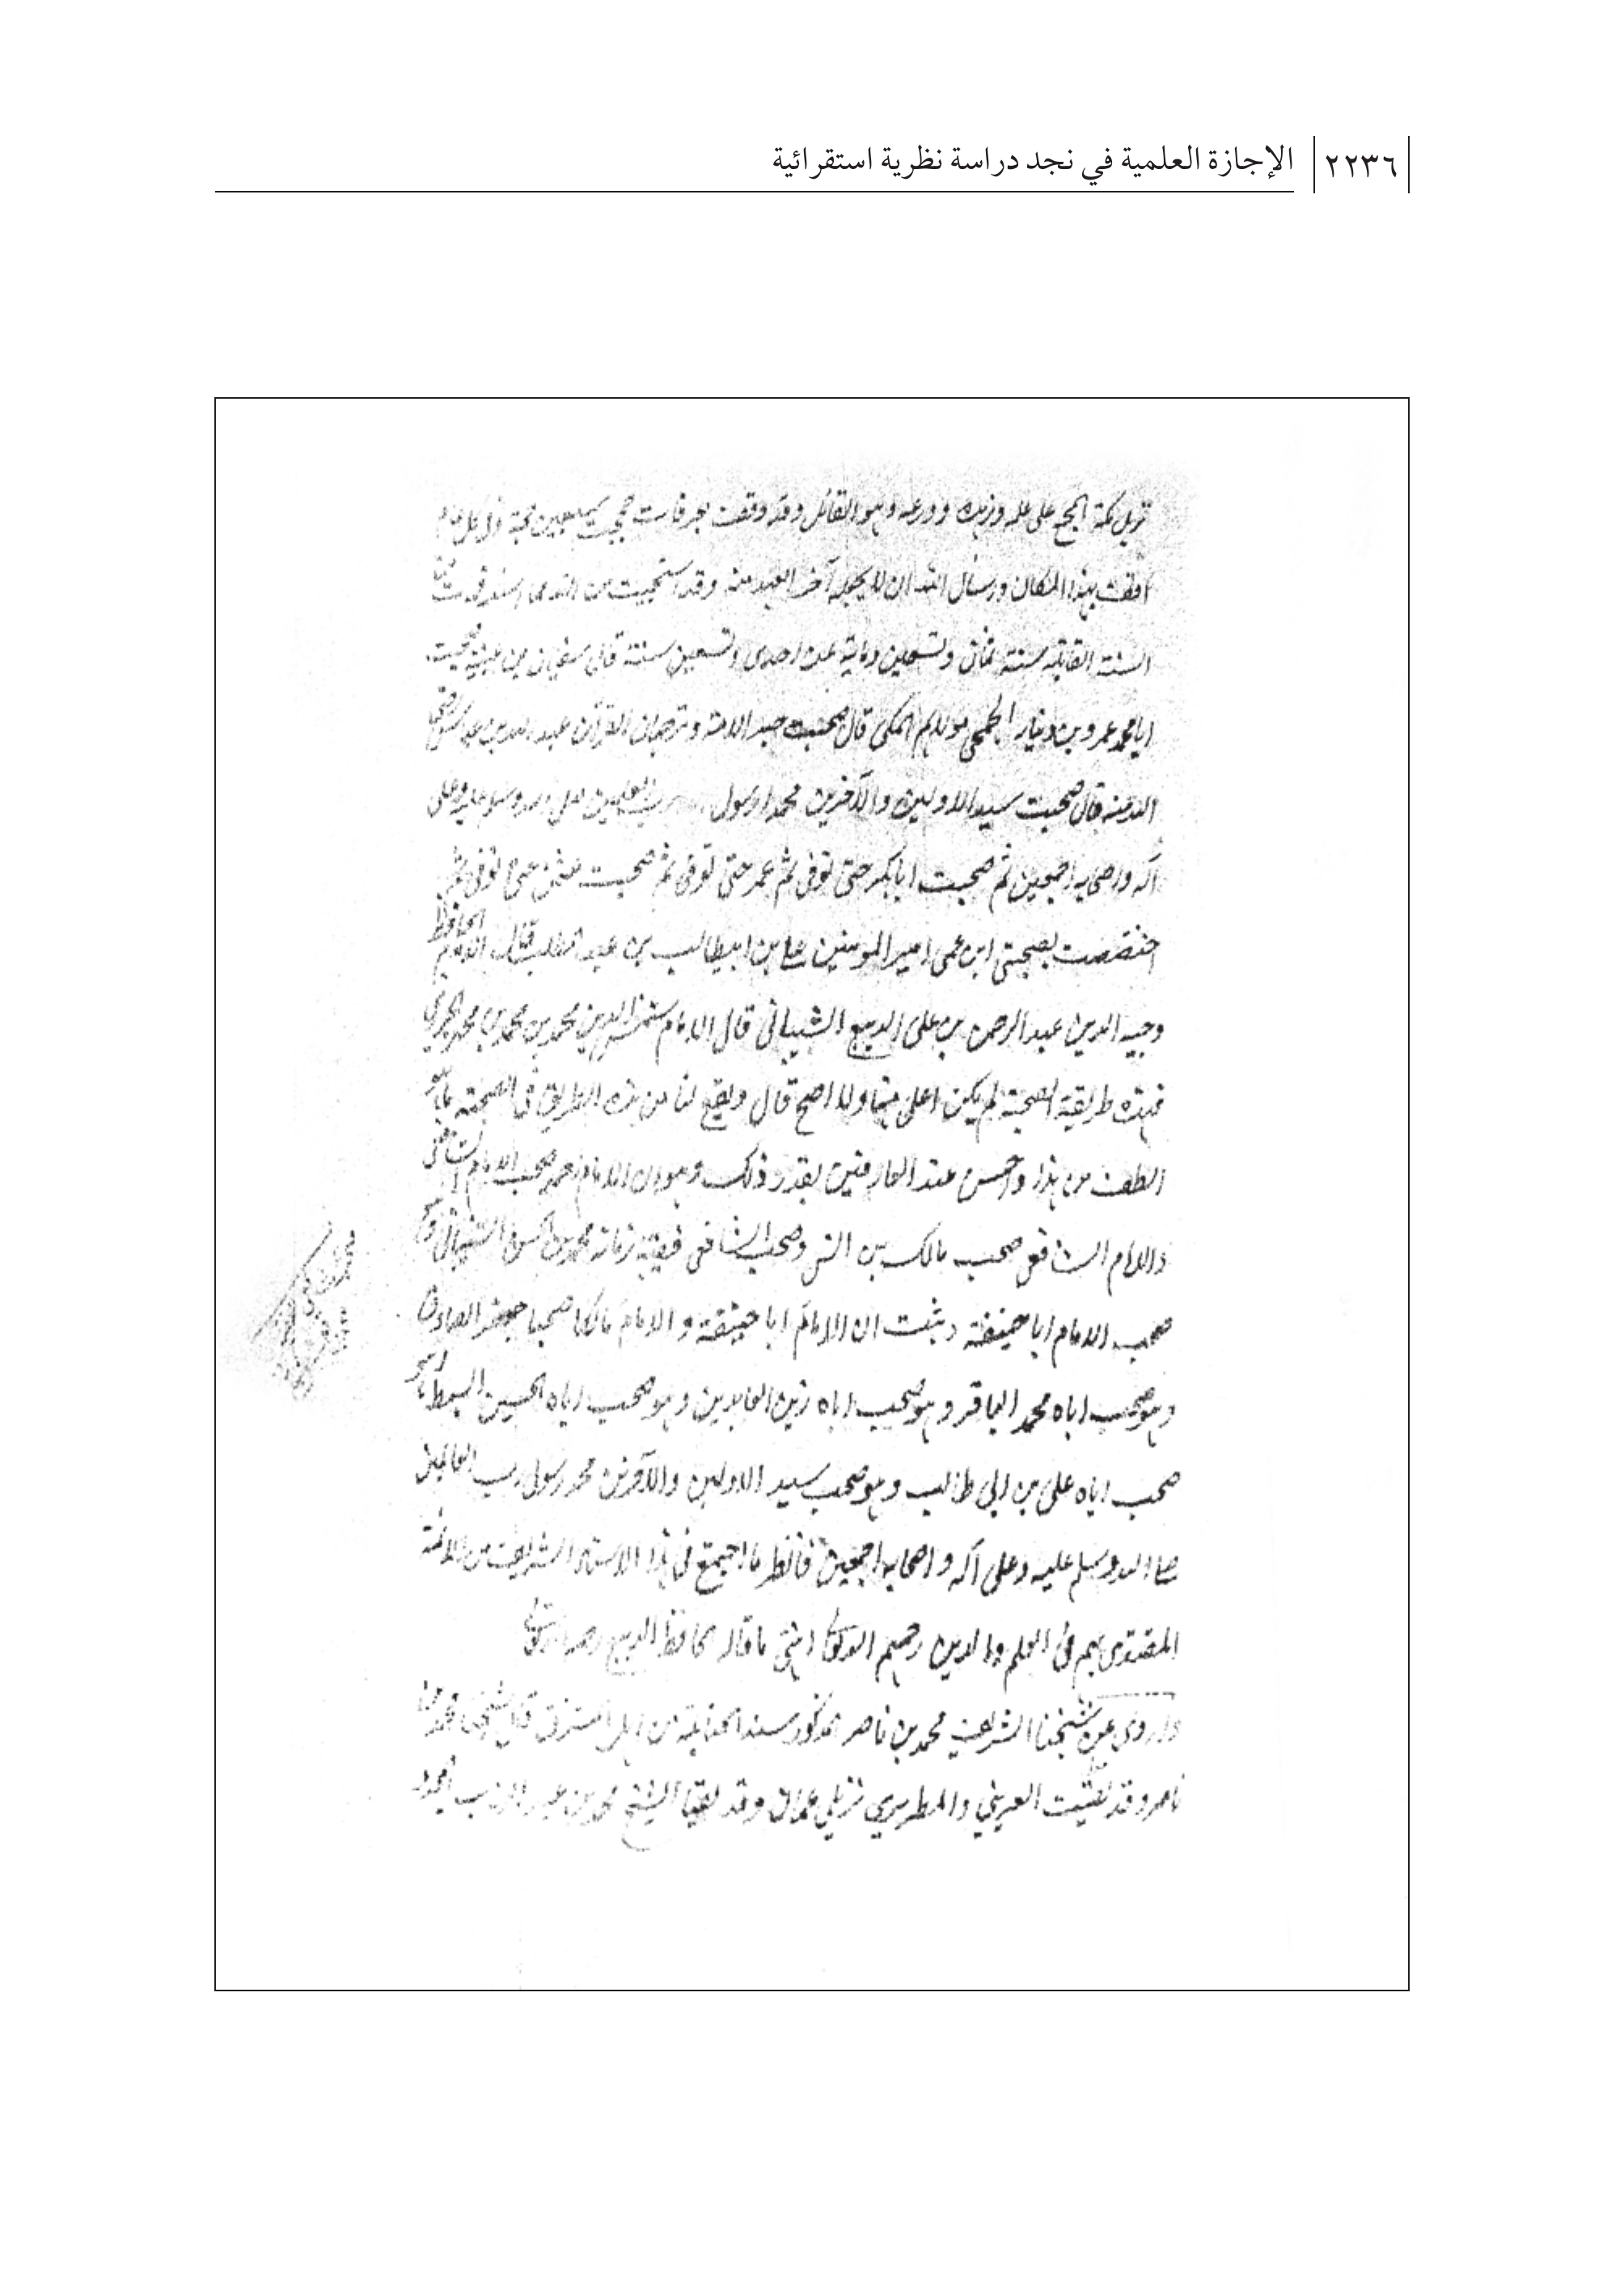 ٢٢٣٦ الإجازة العلمية في نجد دراسة نظرية استقرائية
نزيل مكة اجمع على علمه وزهده وورعه وهو القائل وقد وقف بعرفات حججت سبعين حجة
اقف بهذا المكان واسال الله ان لا يجعله آخر العهد منه وقد استحييت من
السنة القابلة سنة ثمان وتسعين وماية عن احدى وتسعين سنة قال سفيان بن عيينة صحبت
ابا محمد عمرو بن دينار الجمحي مولاهم المكي قال صحبت حبر الامة وترجمان القرآن عبد الله بن عباس رضي
الله عنه قال صحبت سيد الاولين والآخرين محمدا رسول رب العلمين
آله واصحابه اجمعين ثم صحبت ابا بكر حتى توفي ثم عمر حتى توفي ثم صحبت عثمن حتى توفي ثم
اختصصت بصحبتي ابن عمي امير المومنين علي بن ابيطالب بن عبد المطلب قال الامام الحافظ
وجيه الدين عبد الرحمن بن علي الديبع الشيباني قال الامام شمس الدين محمد بن محمد بن محمد الجزري
فهذه طريقة الصحبة لم يكن اعلى منها ولا اصح قال ويقع لنا من هذه الطريق في الصحبة ما هو
الطف من هذا واحسن عند العارفين بقدر ذلك وهو ان الامام احمد صحب الامام الشافعي
والامام الشافعي صحب مالك بن انس وصحب الشافعي فقيه زمانه محمد بن الحسن الشيباني وهو
صحب الامام ابا حنيفة وثبت ان الامام ابا حنيفة والامام مالكا صحبا جعفر الصادق
وهو صحب اباه محمد الباقر وهو صحب اباه زين العابدين وهو صحب اباه الحسين السبط
صحب اباه علي بن ابي طالب وهو صحب سيد الاولين والآخرين محمد رسول رب العالمين
صلى الله وسلم عليه وعلى آله واصحابه اجمعين فانظر ما اجتمع في هذا الاسناد الشريف من الائمة
المقتدى بهم في العلم والدين رحمهم الله تعالى انتهى ما قاله الحافظ الديبع رحمه الله تعالى
واروي عن شيخنا الشريف محمد بن ناصر المذكور سند الحنابلة من اهل المشرق قال شيخي محمد بن
ناصر وقد لقيت العريني والمطرسي نزيل عمان وقد لقيا الشيخ محمد بن عبد الوهاب